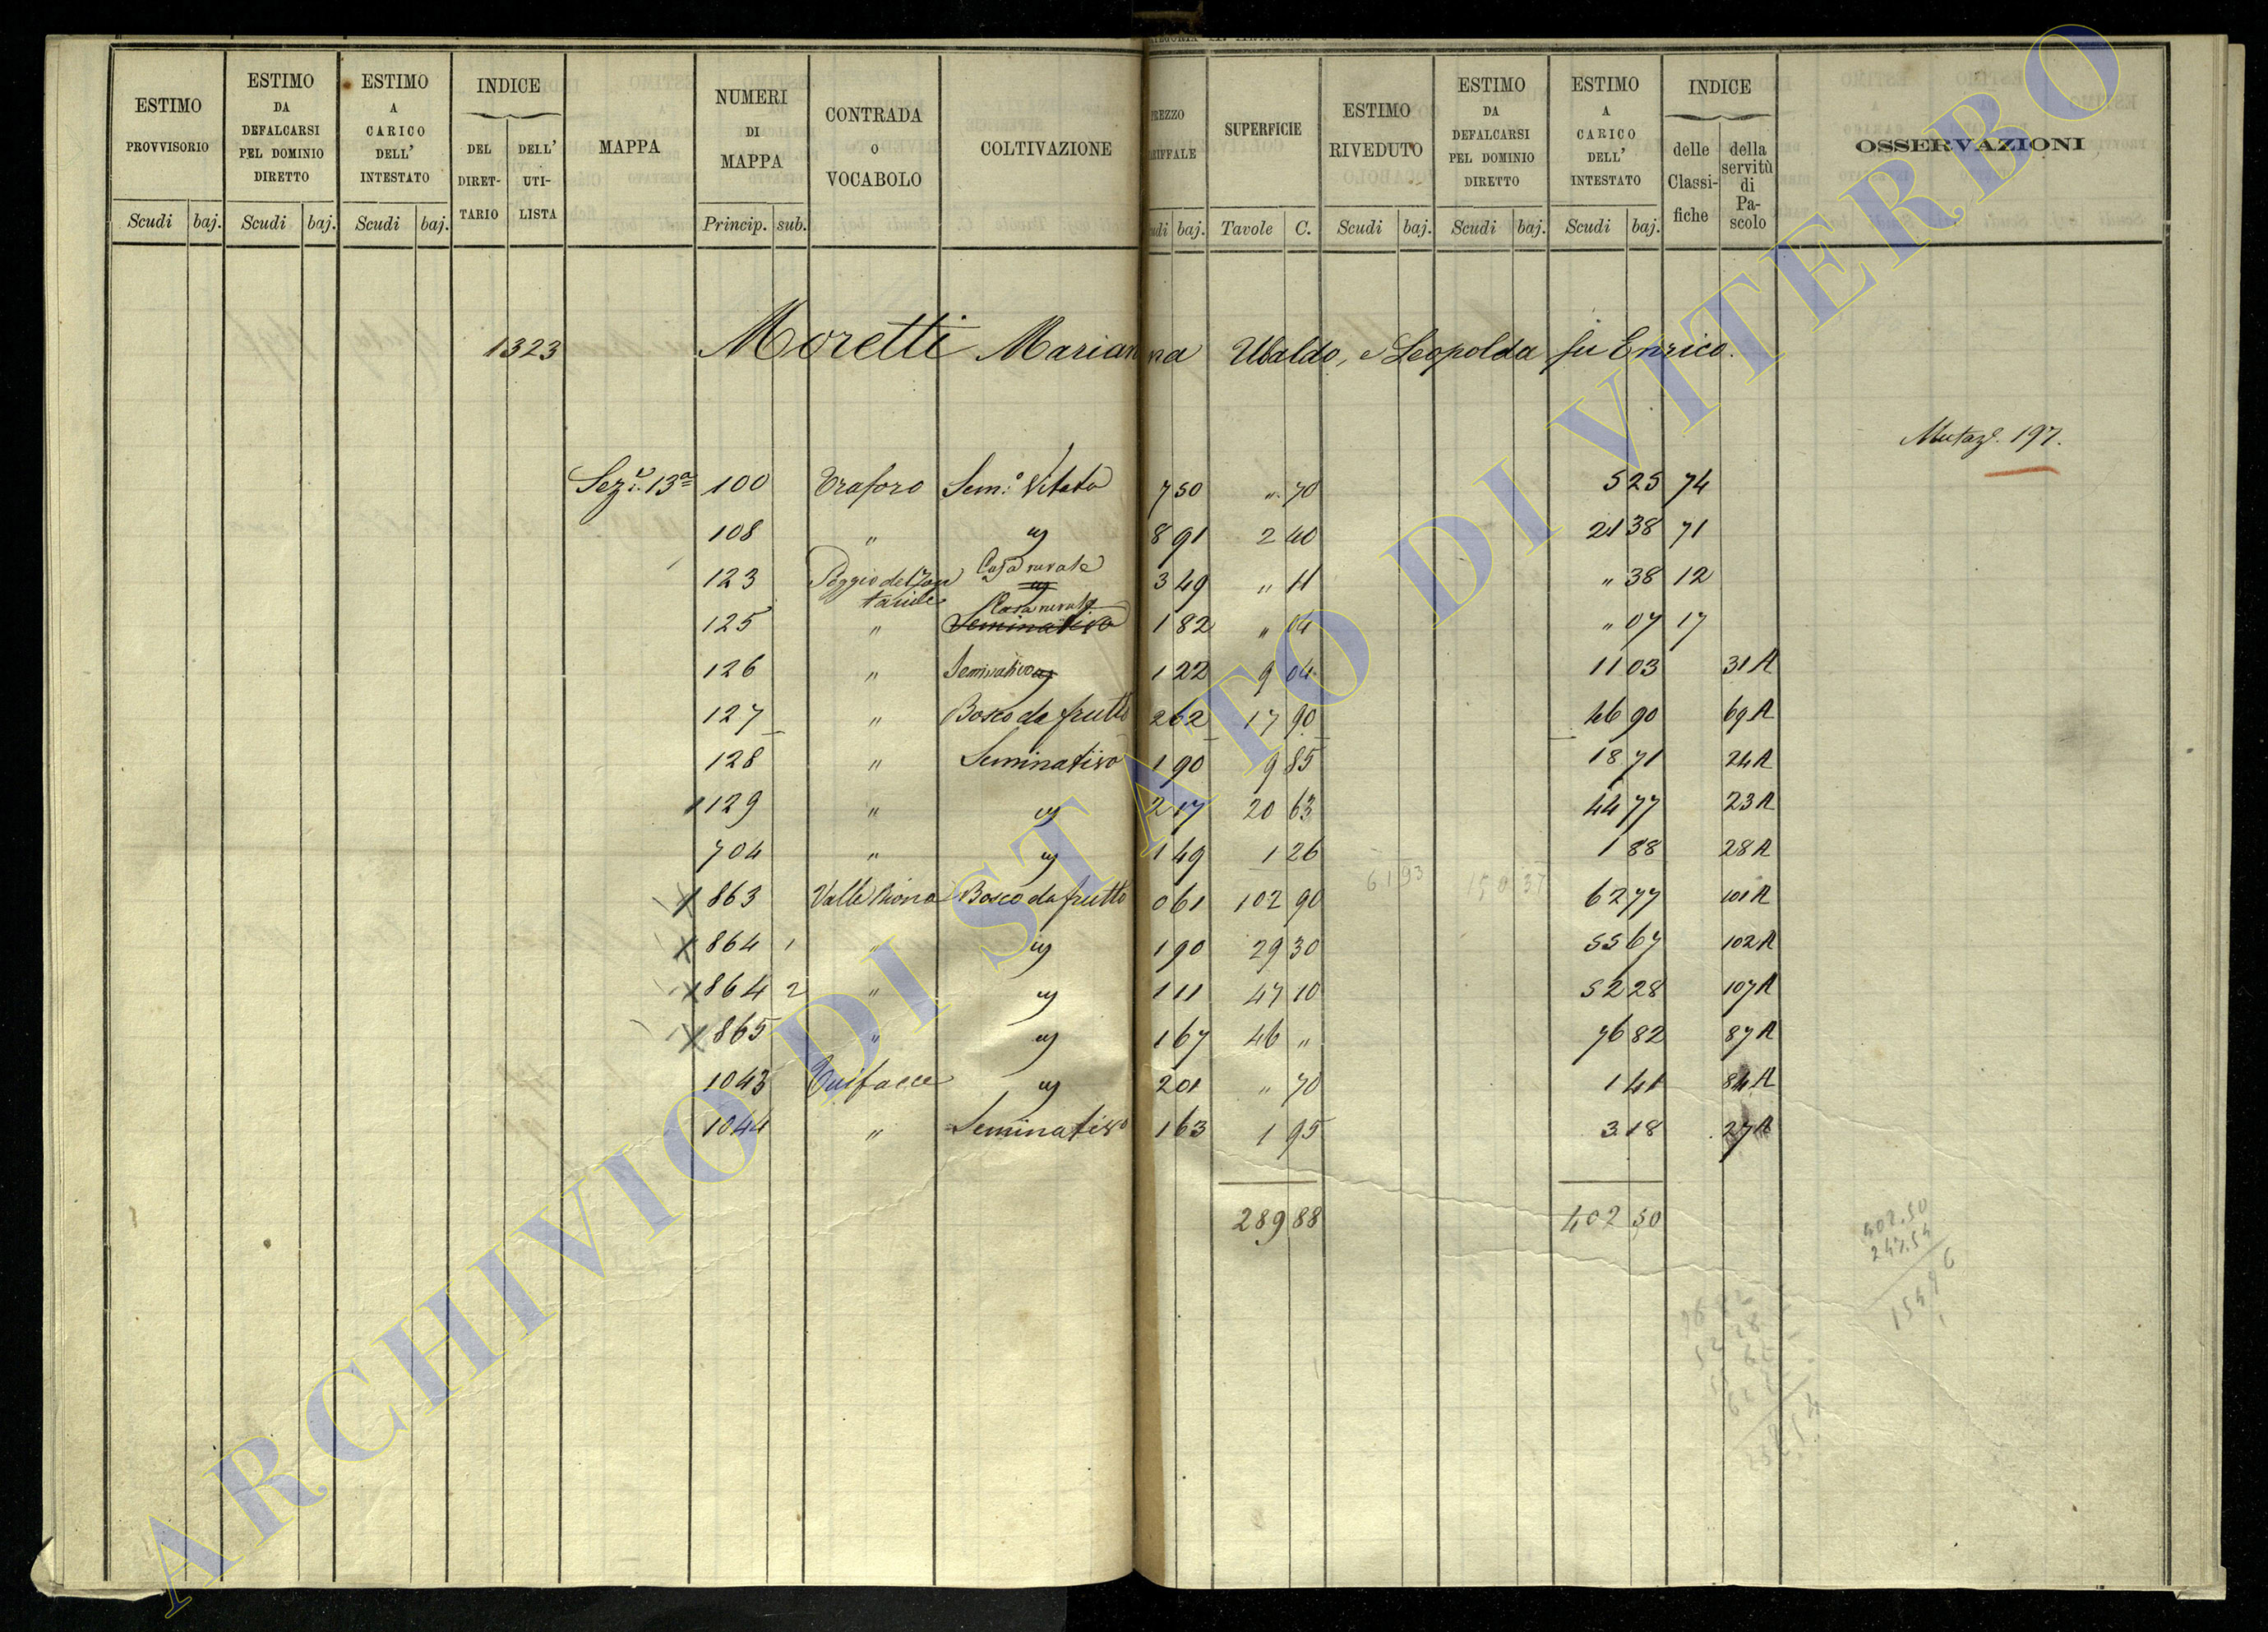 ESTIMO PROVVISORIO | ESTIMO DA DEFALCARSI PEL DOMINIO DIRETTO | ESTIMO A CARICO DELL' INTESTATO | INDICE | MAPPA | NUMERI DI MAPPA | CONTRADA O VOCABOLO | COLTIVAZIONE | SUPERFICIE | ESTIMO RIVEDUTO | ESTIMO DA DEFALCARSI PEL DOMINIO DIRETTO | ESTIMO A CARICO DELL' INTESTATO | INDICE | OSSERVAZIONI
DEL DIRET-TARIO | DELL' UTI-LISTA | delle Classi-fiche | della servitù di Pa-scolo
Scudi | baj. | Scudi | baj. | Scudi | baj. | Princip. | sub. | baj. | Tavole | C. | Scudi | baj. | Scudi | baj. | Scudi | baj.
1323 Moretti Marianna Ubaldo, e Leopolda fu Enrico.
Mutaz.e 197.
Sez. 13a 100 Sem.o Vitato 7 50 " 70 5 25 74
108 " 8 91 2 40 21 38 71
123 Poggio del Casa rurale 3 49 " 11 " 38 12
125 " Casa rurale Seminativo 1 82 " 04 " 07 17
126 " Seminativo 1 22 9 04 11 03 31 A
127 " Bosco da frutto 2 62 17 90 46 90 69 A
128 " Seminativo 1 90 9 85 18 71 24 A
129 " 2 17 20 63 44 77 23 A
704 " 1 49 1 26 1 88 28 A
61 93 150 37
863 Valle Bosco da frutto 0 61 102 90 62 77 101 A
864 1 " 1 90 29 30 55 67 102 A
864 2 " 1 11 47 10 52 28 107 A
865 " 1 67 46 " 76 82 87 A
1043 2 01 " 70 1 41 84 A
1044 " Seminativo 1 63 1 95 3 18 27 A
289 88 402 50
402.50
247.54
ARCHIVIO DI STATO DI VITERBO